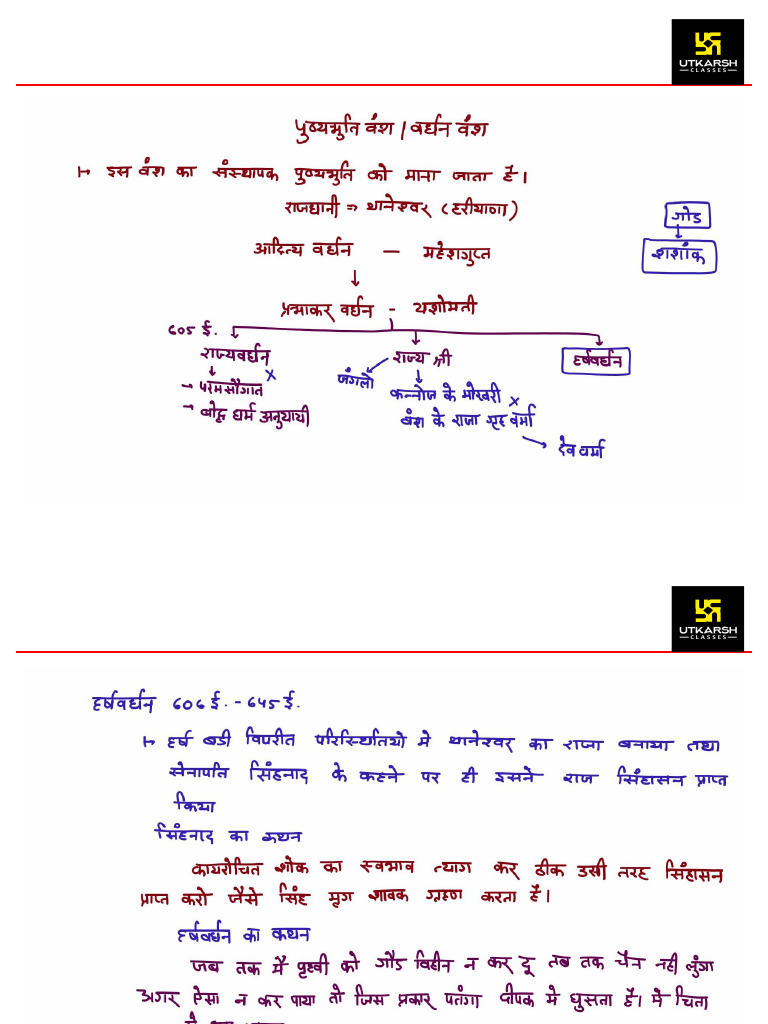 UTKARSH
CLASSES
पुष्यभुति वंश / वर्धन वंश
इस वंश का संस्थापक पुष्यभुति को माना जाता है।
राजधानी => थानेश्वर (हरीयाणा)
गोड
शशांक
आदित्य वर्धन — महेशगुप्त
प्रभाकर वर्धन - यशोमती
605 ई.
राज्यवर्धन राज्य श्री हर्षवर्धन
x
→ परमसौगात
→ बोद्ध धर्म अनुयायी
जंगलो
कन्नोज के मोखरी x
वंश के राजा गृह वर्मा
देव वर्मा
UTKARSH
CLASSES
हर्षवर्धन 606 ई. - 645 ई.
हर्ष बडी विपरीत परिस्थितियो मे थानेश्वर का राजा बनाया तथा
सेनापति सिंहनाद के कहने पर ही इसने राज सिंहासन प्राप्त
किया
सिंहनाद का कथन
कायरोचित शोक का स्वभाव त्याग कर ठीक उसी तरह सिंहासन
प्राप्त करो जैसे सिंह मृग शावक ग्रहण करता है।
हर्षवर्धन का कथन
जब तक मैं पृथ्वी को गौड विहीन न कर दू तब तक चैन नही लुंगा
अगर ऐसा न कर पाया तो जिस प्रकार पतंगा दीपक मे घुसता है। मे चिता